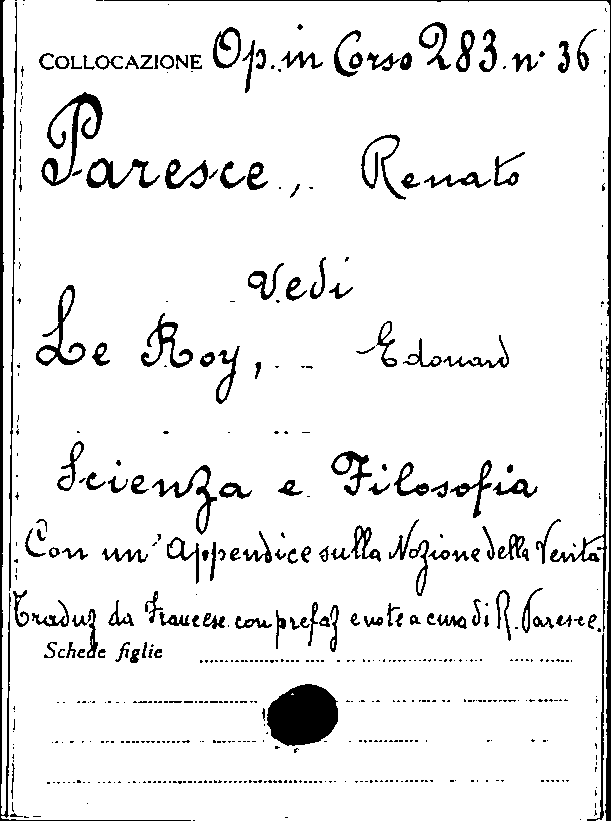 COLLOCAZIONE Op. in Corso 283. n. 36
Paresce, Renato
Vedi
Le Roy, Edouard
Scienza e Filosofia
Con un' Appendice sulla Nozione della Verità
Traduz da Francese con prefaz e note a cura di R. Paresce.
Schede figlie